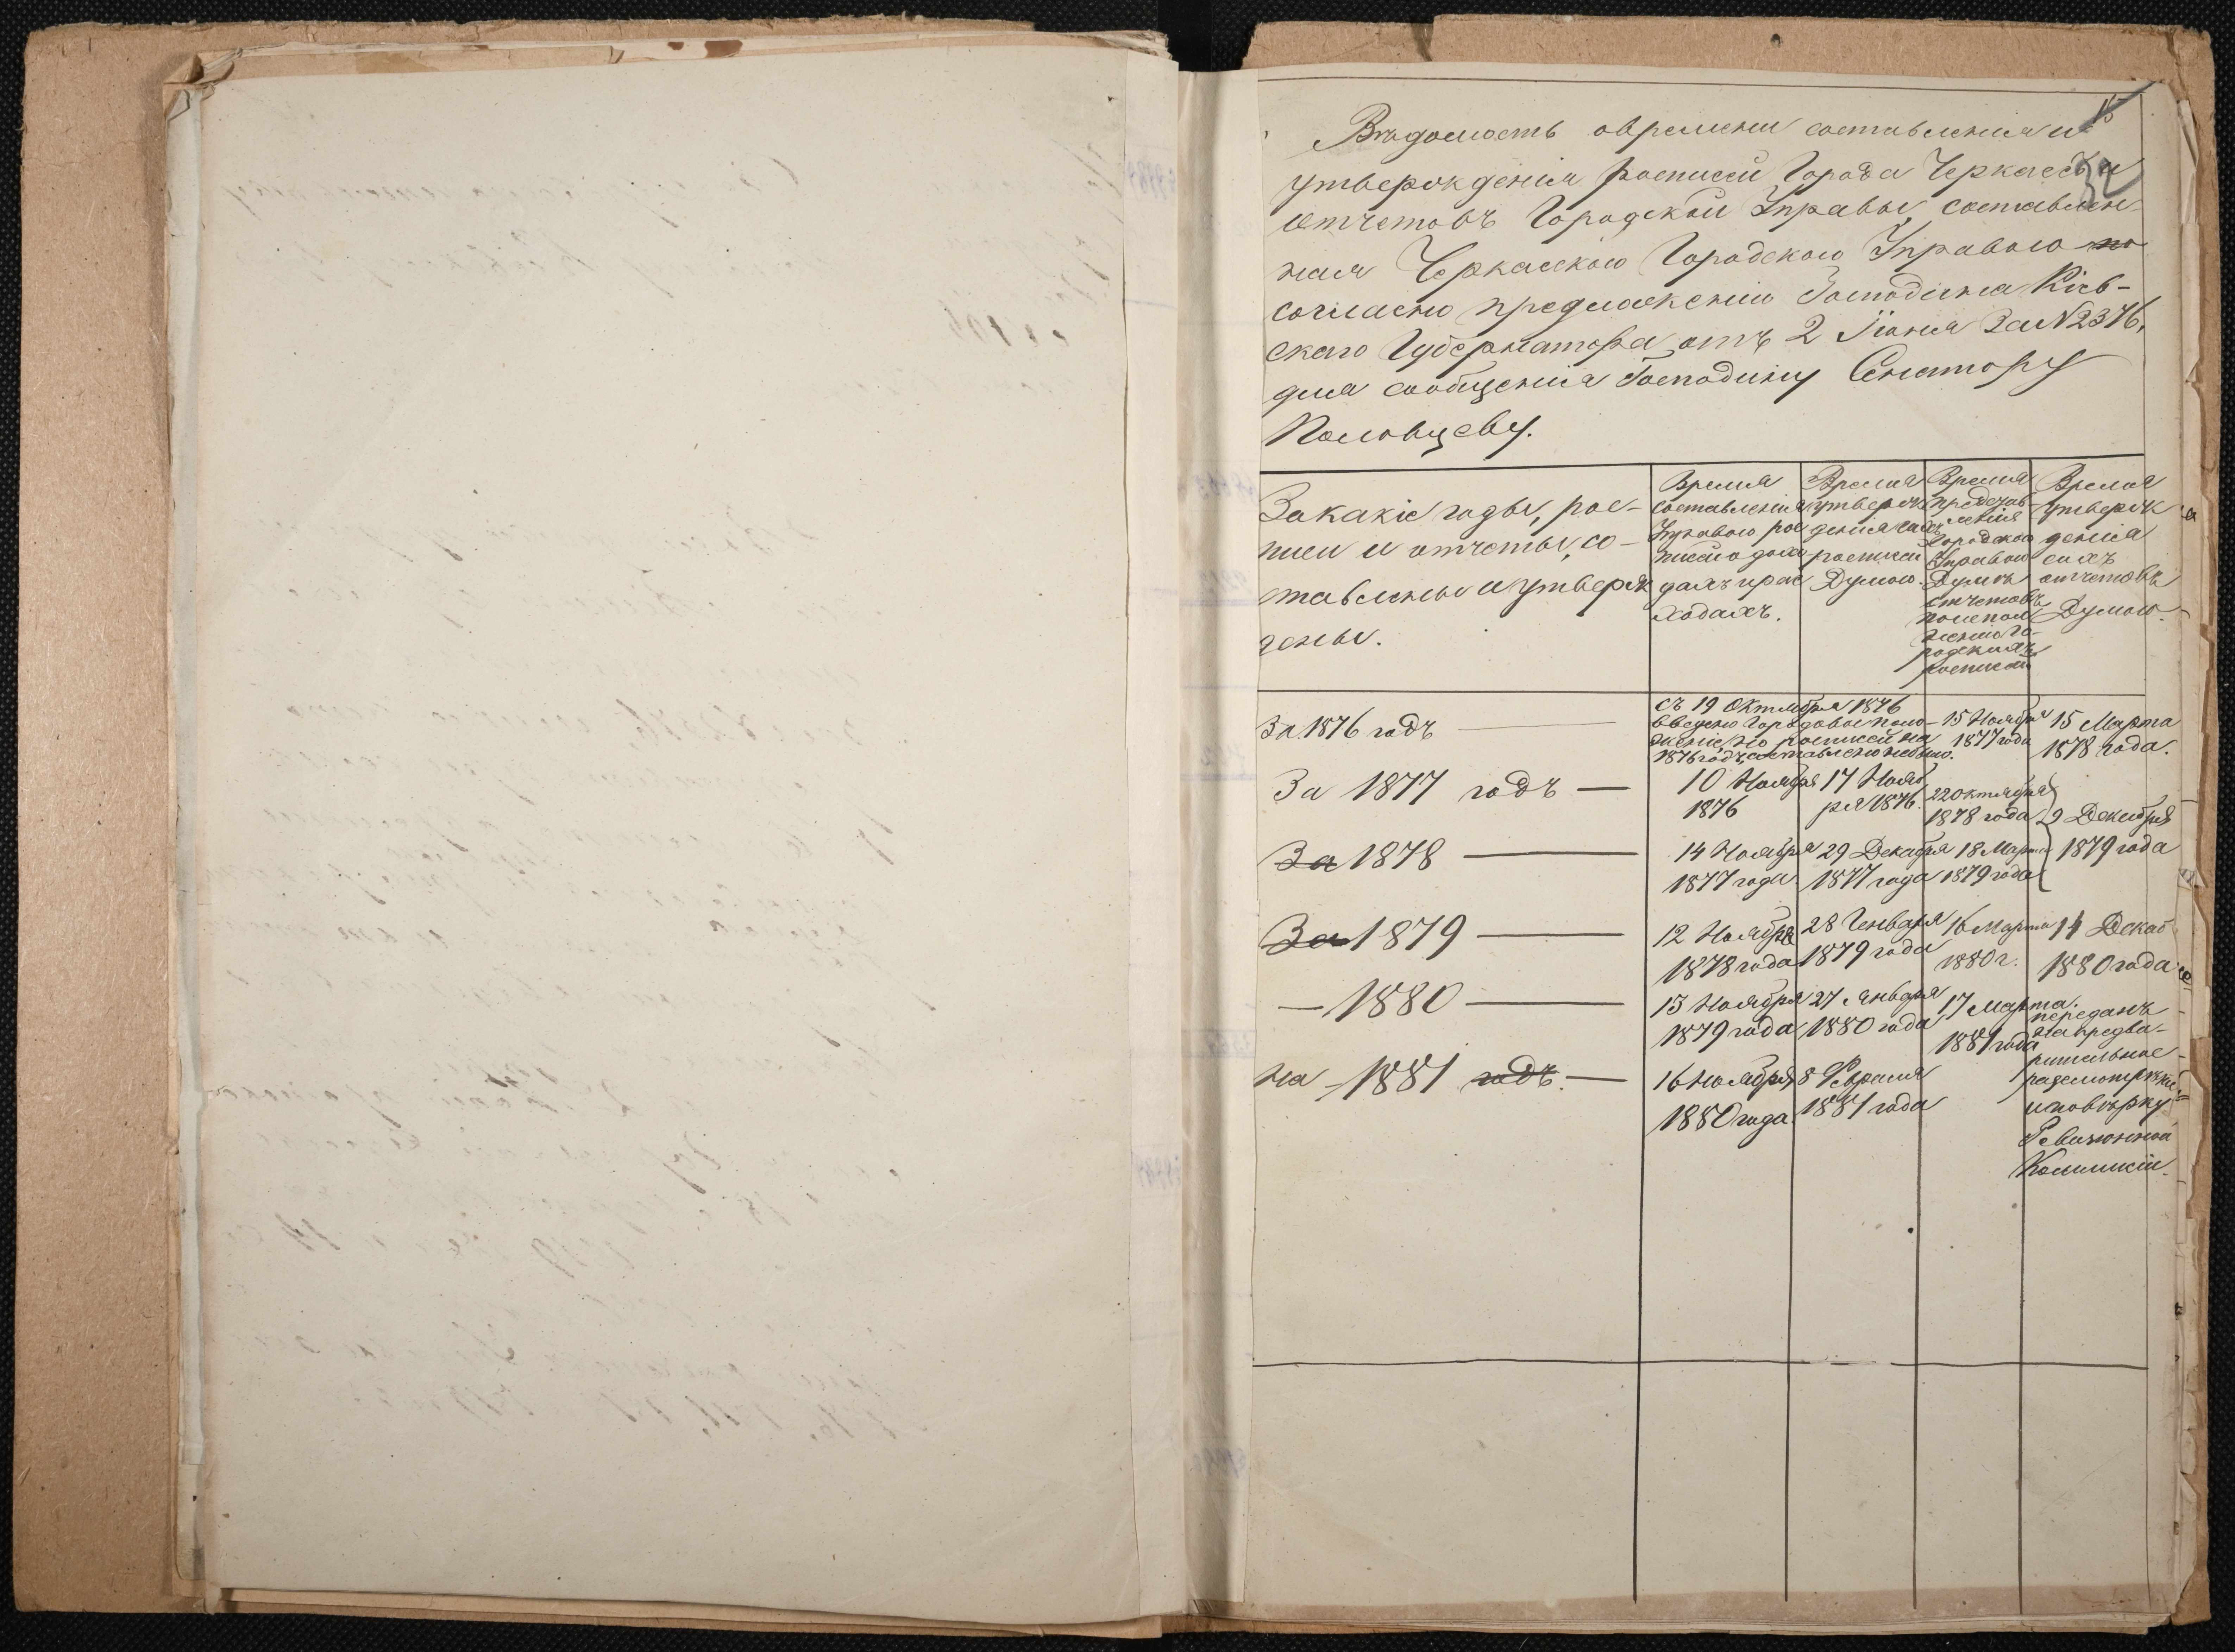 15
32
Вѣдомость о времени составленія и
утвержденія росписей Города Черкасъ и
отчетовъ Городской Управы, составлен-
ная Черкасскою Городскою Управою по
согласно предложенію Господина Кіев-
скаго Губернатора отъ 2 Іюня За № 2376,
для сообщенія Господину Сенатору
Половцеву.
За какіе годы, рос-
писи и отчеты, со-
ставлены и утверж
дены.
Время
составленія
Управою рос
писей о дохо
дахъ и рас
ходахъ.
Время
утверж
денія сихъ
росписей
Думою.
Время
представ
ленія
Городскою
Управою
Думѣ
отчетовъ
по исполн
ненію го-
родскихъ
росписей
Время
утверж
денія
сихъ
отчетовъ
Думою.
За 1876 годъ
съ 19 Октября 1876
введено Городовое поло-
женіе, но росписей на
1876 годъ составлено не было.
15 Ноября
1877 года
15 Марта
1878 года.
За 1877 годъ —
10 Ноября
1876
17 Нояб
ря 1876.
22 Октября
1878 года
9 Декабря
1879 года
За 1878 —
14 Ноября
1877 года
29 Декабря
1877 года
18 Марта
1879 года
За 1879 —
12 Ноября
1878 года
28 Генваря
1879 года
16 Марта
1880 г.
14 Декаб
1880 года
— 1880 —
13 Ноября
1879 года
27 Января
1880 года
17 Марта.
1881 года
переданъ
на предва-
рительное
разсмотрѣніе
и повѣрку
Ревизіонной
Коммисіи.
на 1881 годъ. —
16 Ноября
1880 года.
8 Февраля
1881 года